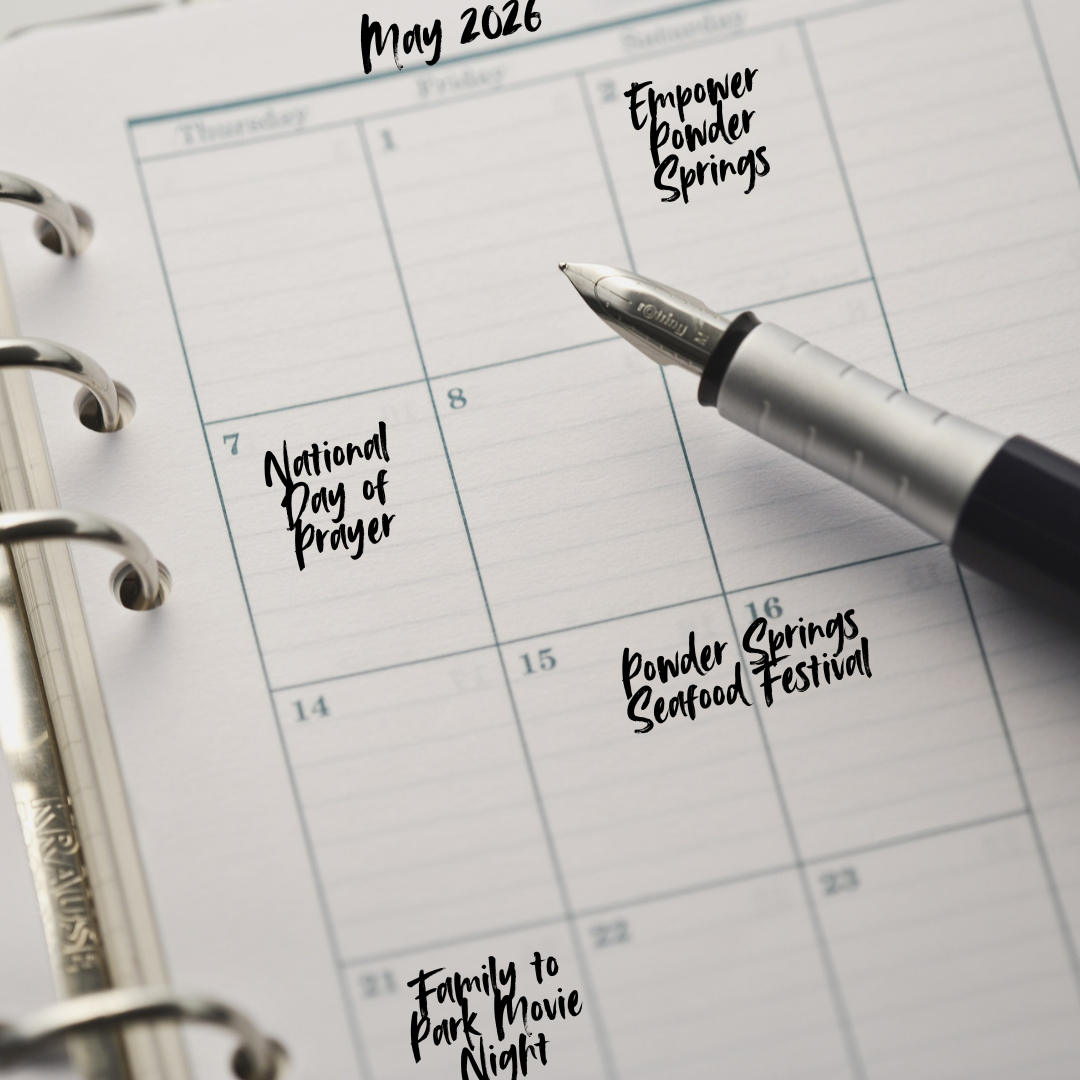 May 2026
Thursday
Friday
Saturday
1
2
Empower
Powder
Springs
rOtring M
7
National
Day of
Prayer
8
14
15
16
Powder Springs
Seafood Festival
KRAUSE
21
Family to
Park Movie
Night
22
23